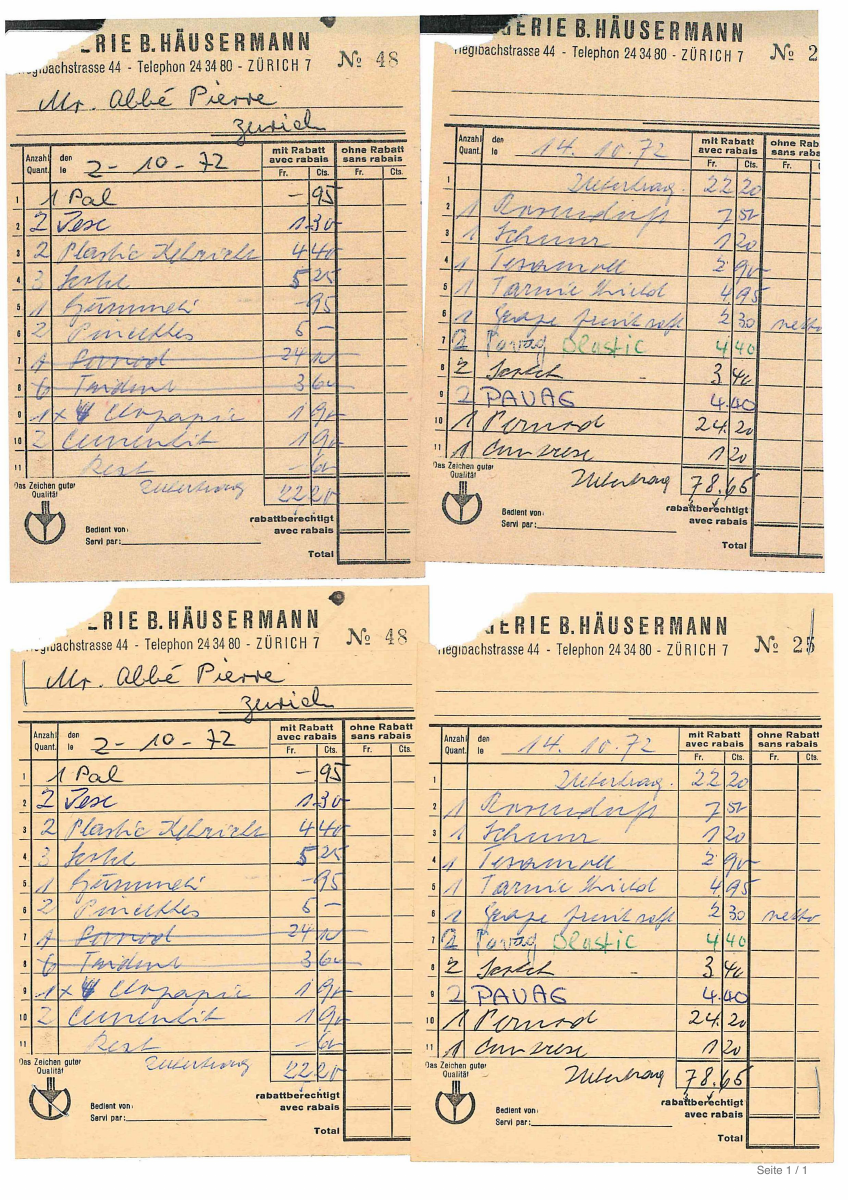 ERIE B. HÄUSERMANN
bachstrasse 44 - Telephon 24 34 80 - ZÜRICH 7 No 48
Mr. Abbé Pierre
Zürich
Anzahl Quant. den le 2-10-72 mit Rabatt avec rabais ohne Rabatt sans rabais
Fr. Cts. Fr. Cts.
1 1 Pal -.95
2 2 1.30
3 2 Plastic 4 40
4 3 5 25
5 1 -95
6 2 6 -
7 1 Pernod 24
8 6 Trident 3 60
9 1 x 4 Clopapier 1 90
10 2 Cementit 1 90
11 Rest
Das Zeichen guter Qualität Uebertrag 22 20
rabattberechtigt avec rabais
Bedient von:
Servi par:
Total
GERIE B. HÄUSERMANN
bachstrasse 44 - Telephon 24 34 80 - ZÜRICH 7 No 2
Anzahl Quant. den le 14. 10. 72 mit Rabatt avec rabais ohne Rabatt sans raba
Fr. Cts. Fr.
1 Uebertrag. 22 20
2 1 7 50
3 1 1 20
4 1 Tesamoll 2 90
5 1 Tarnie Shield 4.95
6 1 Grape fruit saft 2 30 netto
7 2 Pavag Plastic 4 40
8 2 Scotch - 3 40
9 2 PAVAG 4.40
10 1 Pernod 24.20
11 1 1 20
Das Zeichen guter Qualität Uebertrag 78.65
rabattberechtigt avec rabais
Bedient von:
Servi par:
Total
ERIE B. HÄUSERMANN
bachstrasse 44 - Telephon 24 34 80 - ZÜRICH 7 No 48
Mr. Abbé Pierre
Zürich
Anzahl Quant. den le 2-10-72 mit Rabatt avec rabais ohne Rabatt sans rabais
Fr. Cts. Fr. Cts.
1 1 Pal -.95
2 2 1.30
3 2 Plastic 4 40
4 3 5 25
5 1 -95
6 2 6 -
7 1 Pernod 24
8 6 Trident 3 60
9 1 x 4 Clopapier 1 90
10 2 Cementit 1 90
11 Rest
Das Zeichen guter Qualität Uebertrag 22 20
rabattberechtigt avec rabais
Bedient von:
Servi par:
Total
GERIE B. HÄUSERMANN
bachstrasse 44 - Telephon 24 34 80 - ZÜRICH 7 No 25
Anzahl Quant. den le 14. 10. 72 mit Rabatt avec rabais ohne Rabatt sans rabais
Fr. Cts. Fr. Cts.
1 Uebertrag. 22 20
2 1 7 50
3 1 1 20
4 1 Tesamoll 2 90
5 1 Tarnie Shield 4.95
6 1 Grape fruit saft 2 30 netto
7 2 Pavag Plastic 4 40
8 2 Scotch - 3 40
9 2 PAVAG 4.40
10 1 Pernod 24.20
11 1 1 20
Das Zeichen guter Qualität Uebertrag 78.65
rabattberechtigt avec rabais
Bedient von:
Servi par:
Total
Seite 1 / 1